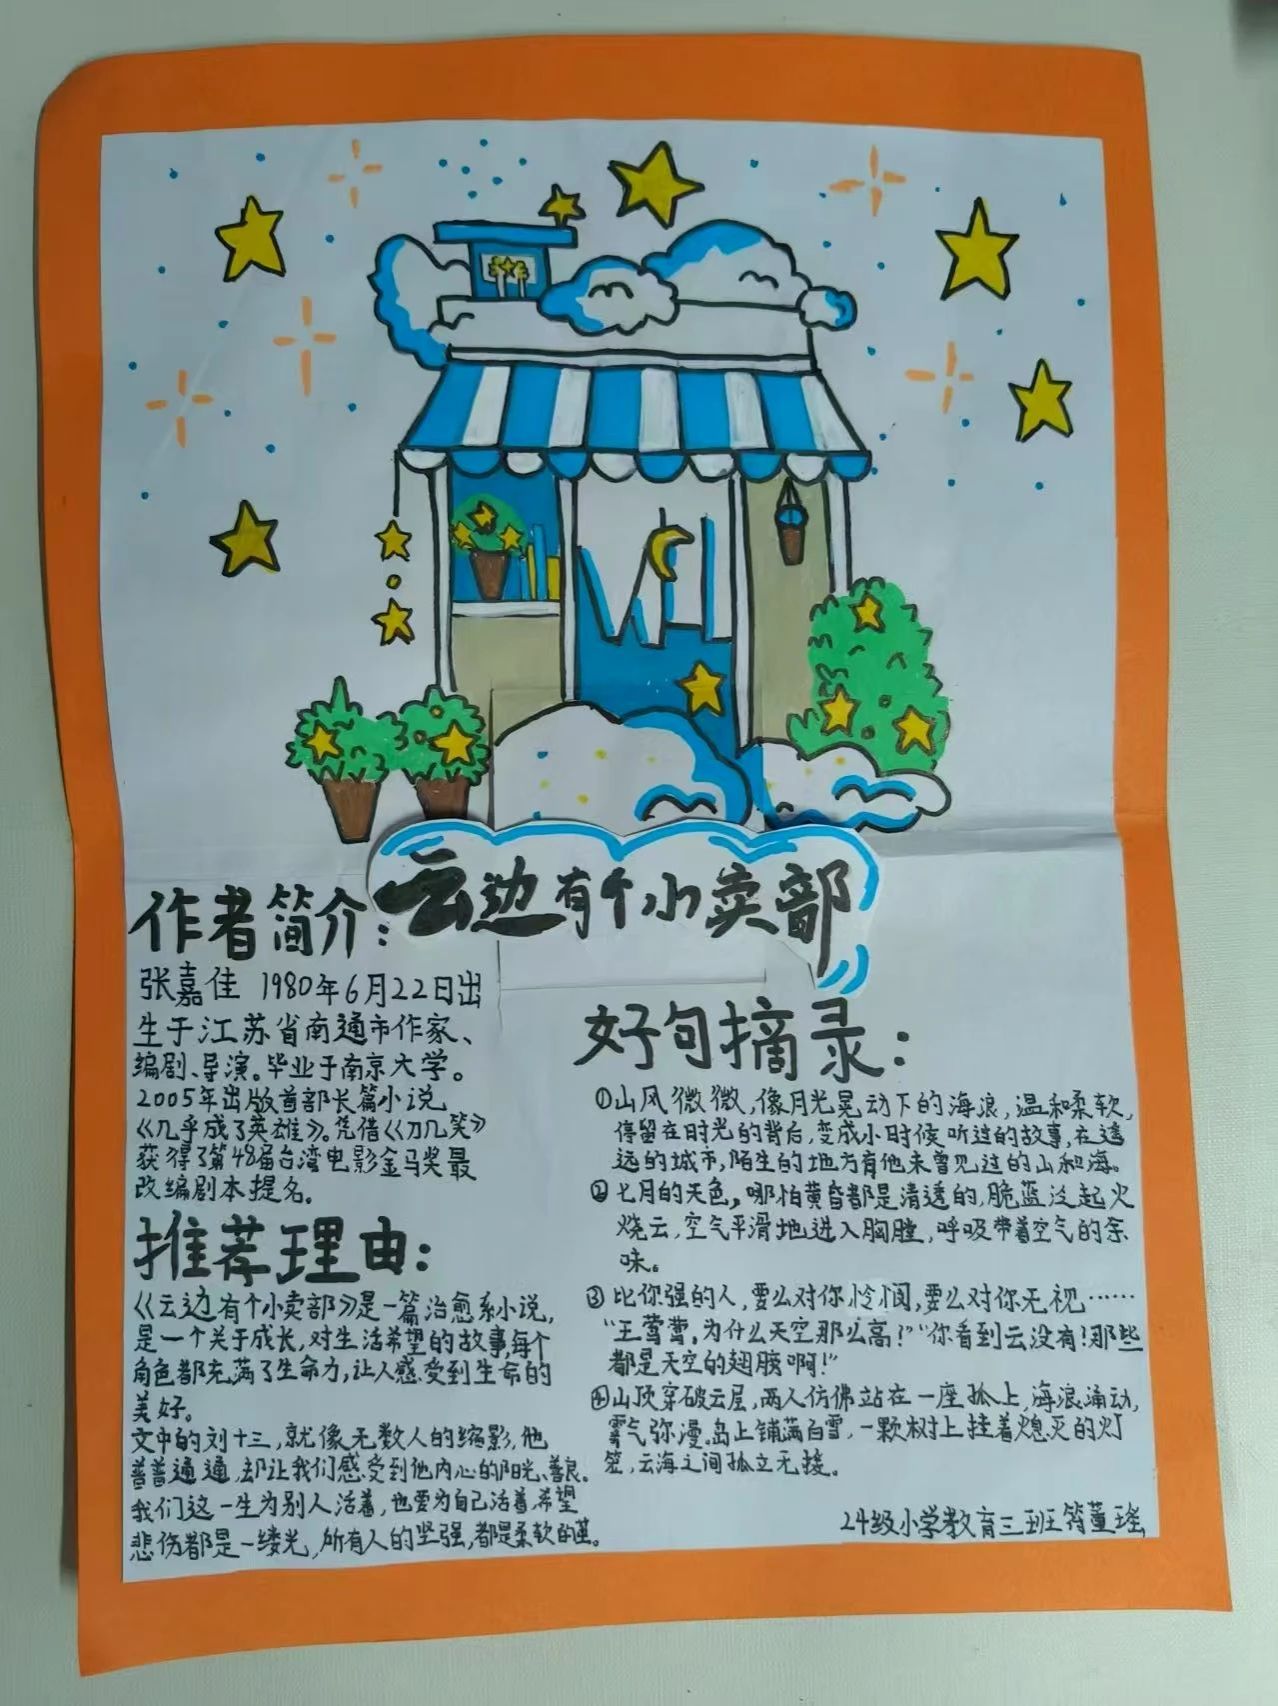 云边有个小卖部
作者简介：
张嘉佳 1980年6月22日出
生于江苏省南通市作家、
编剧、导演。毕业于南京大学。
2005年出版首部长篇小说
《几乎成了英雄》。凭借《刀见笑》
获得了第48届台湾电影金马奖最
改编剧本提名。
推荐理由：
《云边有个小卖部》是一篇治愈系小说，
是一个关于成长，对生活希望的故事，每个
角色都充满了生命力，让人感受到生命的
美好。
文中的刘十三，就像无数人的缩影，他
普普通通，却让我们感受到他内心的阳光、善良。
我们这一生为别人活着，也要为自己活着，希望
悲伤都是一缕光，所有人的坚强，都是柔软的茧。
好句摘录：
①山风微微，像月光晃动下的海浪，温和柔软，
停留在时光的背后，变成小时候听过的故事，在遥
远的城市，陌生的地方有他未曾见过的山和海。
②七月的天色，哪怕黄昏都是清透的，脆蓝泛起火
烧云，空气平滑地进入胸膛，呼吸带着空气的余
味。
③比你强的人，要么对你怜悯，要么对你无视……
“王莺莺，为什么天空那么高！”“你看到云没有！那些
都是天空的翅膀啊！”
④山顶穿破云层，两人仿佛站在一座孤上，海浪涌动，
雾气弥漫。岛上铺满白雪，一颗树上挂着熄灭的灯
笼，云海之间孤立无援。
24级小学教育三班符董